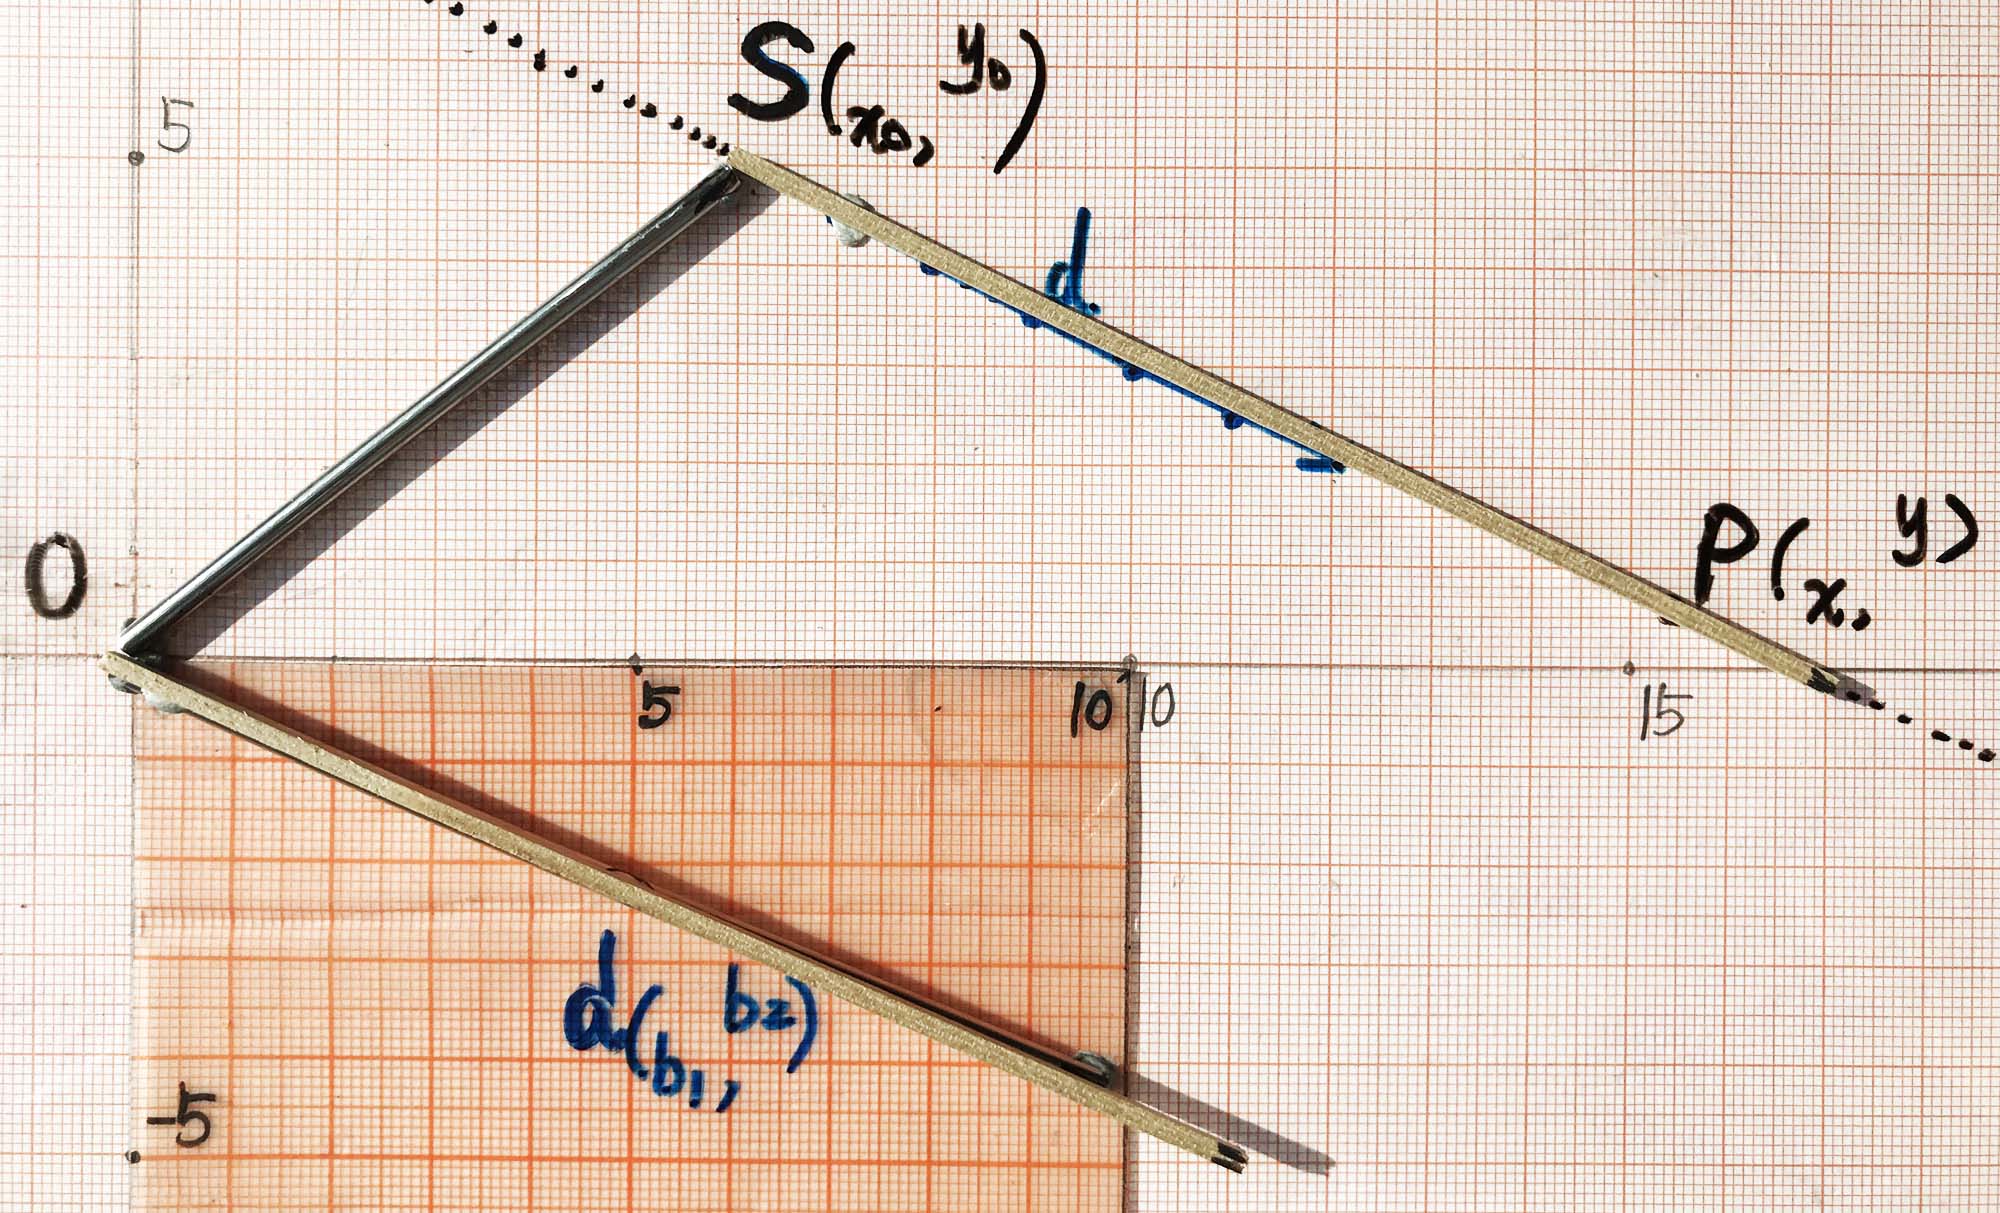 S(x₀, y₀)
5
d
O
P(x, y)
5
10
10
15
d(b₁, b₂)
-5